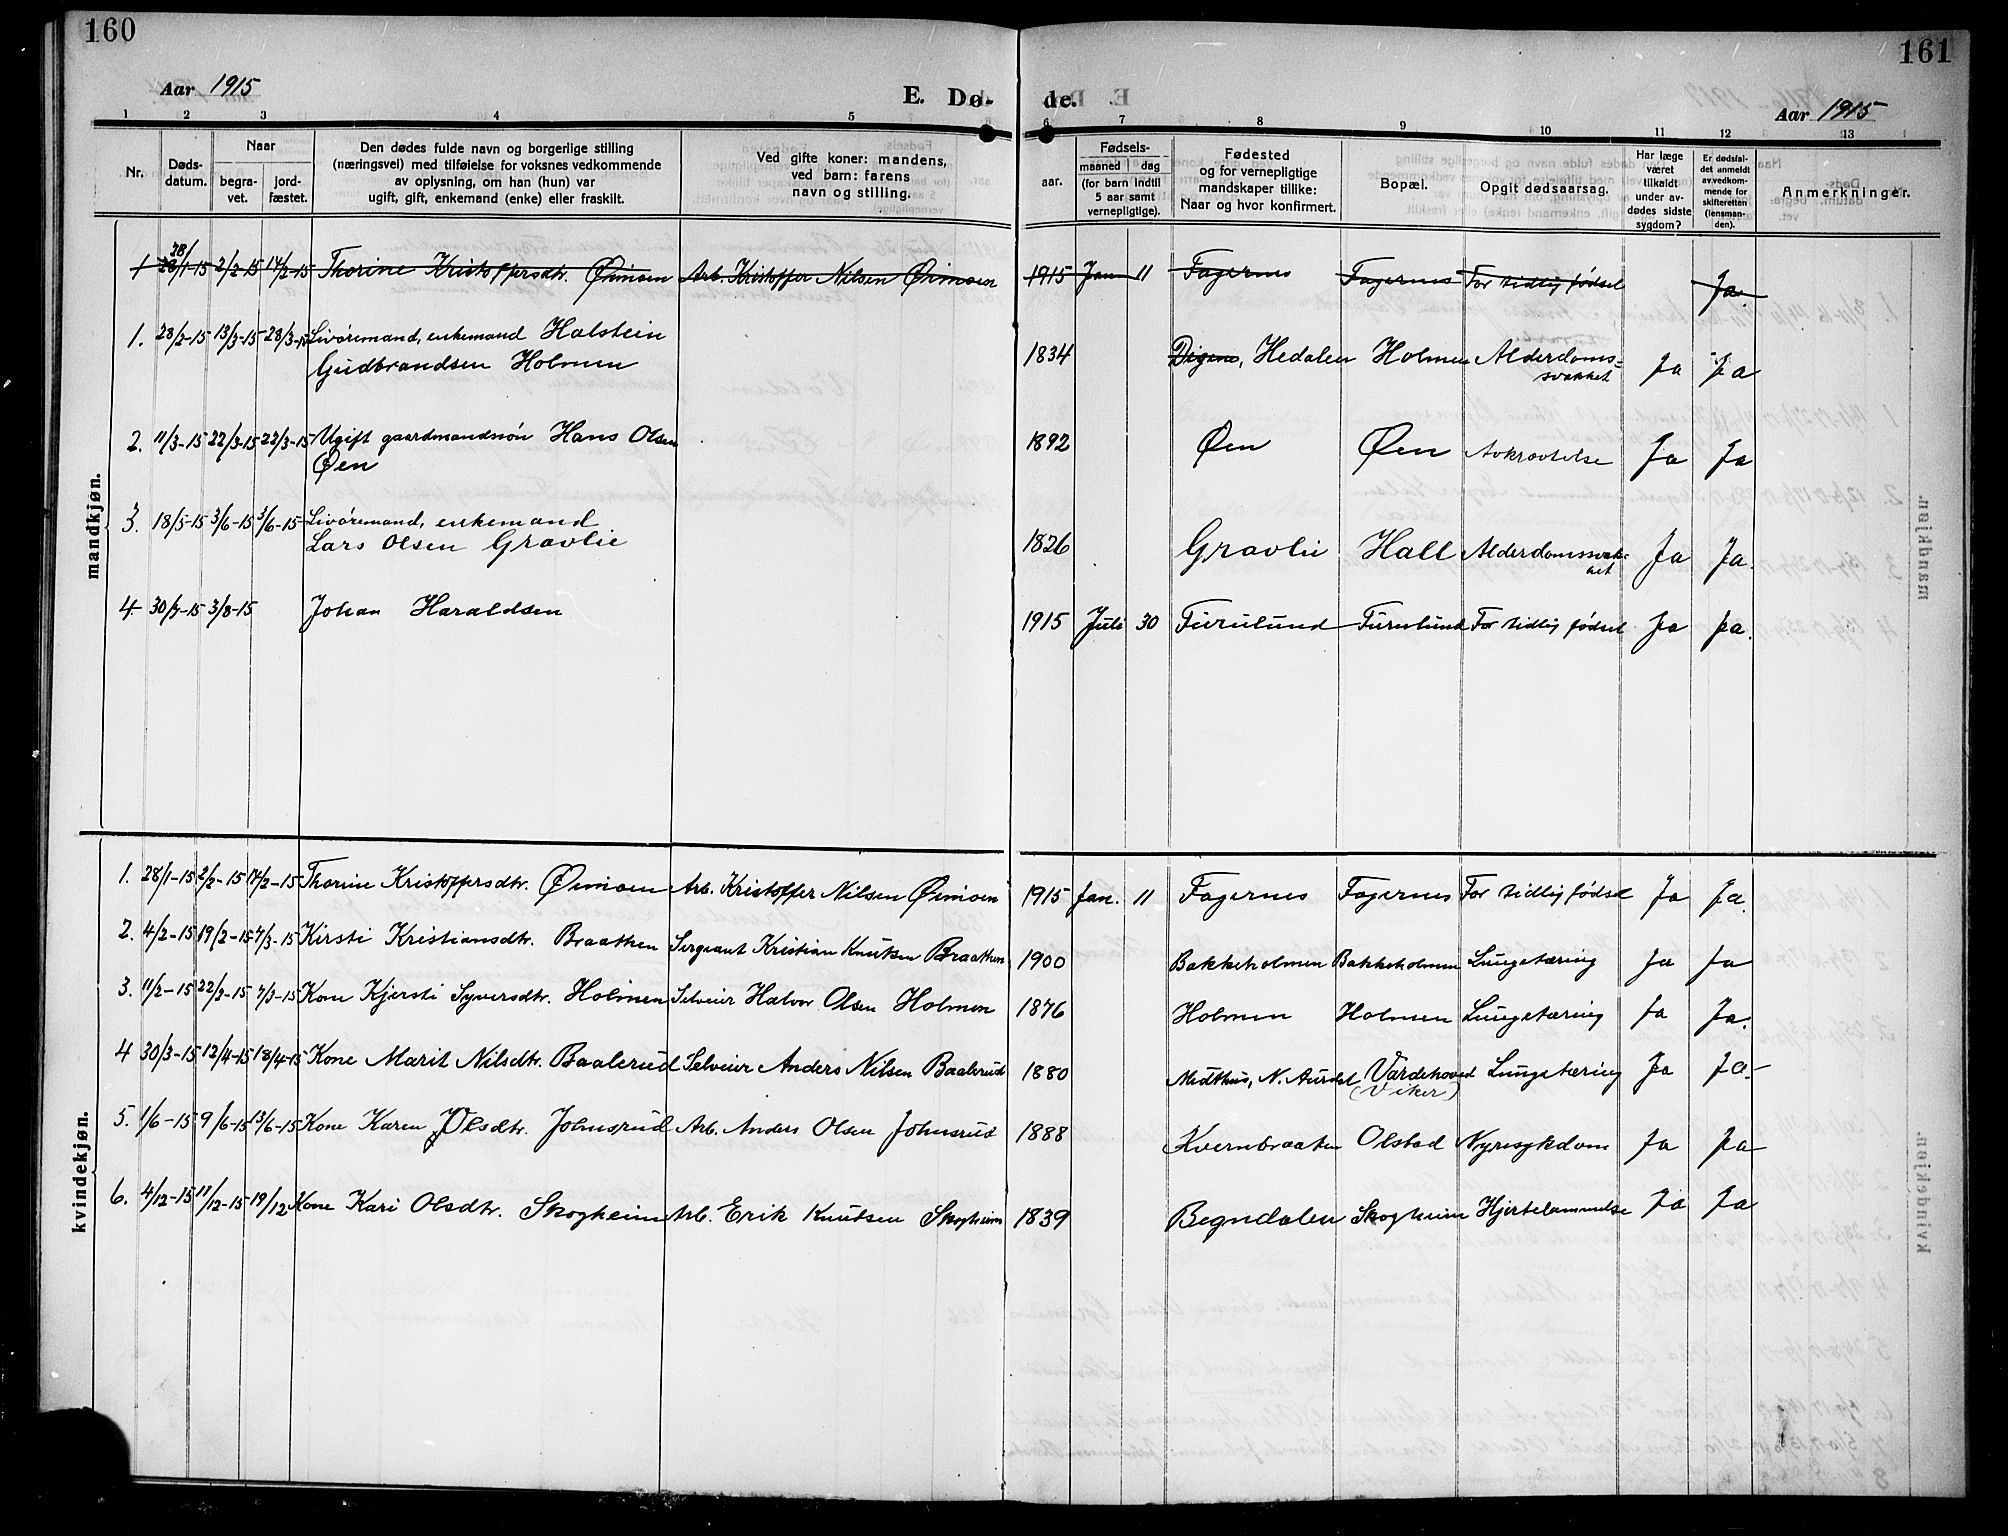 160
161
Aar 1915
E. Dø-
de.
Aar 1915
1 2 3 4 5
6 7 8 9 10 11 12 13
Nr.
Døds-
datum.
Naar
begra-
vet.
jord-
fæstet.
Den dødes fulde navn og borgerlige stilling
(næringsvei) med tilføielse for voksnes vedkommende
av oplysning, om han (hun) var
ugift, gift, enkemand (enke) eller fraskilt.
Ved gifte koner: mandens,
ved barn: farens
navn og stilling.
aar.
Fødsels-
maaned dag
(for barn indtil
5 aar samt
vernepligtige).
Fødested
og for vernepligtige
mandskaper tillike:
Naar og hvor konfirmert.
Bopæl.
Opgit dødsaarsag.
Har læge
været
tilkaldt
under av-
dødes sidste
sygdom?
Er dødsfal-
det anmeldt
av vedkom-
mende for
skifteretten
(lensman-
den).
Anmerkninger.
mandkjøn.
1 28/1-15 2/2-15 17/2-15 Thorine Kristoffersdtr. Øimoen Arb. Kristoffer Nilsen Øimoen 1915 Jan 11 Fagernes Fagernes For tidlig fødsel Ja
1. 28/2-15 13/3-15 28/3-15 Livøremand, enkemand Halstein
Gudbrandsen Holmen 1834 Hedalen Holmen Alderdoms-
svakhet Ja Ja
2. 11/3-15 22/3-15 22/3-15 Ugift gaardmandsøn Hans Olsen
Øen 1892 Øen Øen Avkræftelse Ja Ja
3. 18/5-15 3/6-15 3/6-15 Livøremand, enkemand
Lars Olsen Gravlie 1826 Gravlie Hall Alderdomssvak-
het Ja Ja.
4. 30/7-15 3/8-15 Johan Haraldsen 1915 Juli 30 Furulund Furulund For tidlig fødsel Ja Ja.
kvindekjøn.
1. 28/1-15 2/2-15 17/2-15 Thorine Kristoffersdtr. Øimoen Arb. Kristoffer Nilsen Øimoen 1915 Jan. 11 Fagernes Fagernes For tidlig fødsel Ja Ja.
2. 4/2-15 19/2-15 7/3-15 Kirsti Kristiansdtr. Braathen Sergeant Kristian Knutsen Braathen 1900 Bakkeholmen Bakkeholmen Lungetæring Ja Ja
3. 11/2-15 22/2-15 7/3-15 Kone Kjersti Syversdtr. Holmen Selveier Halvor Olsen Holmen 1876 Holmen Holmen Lungetæring Ja Ja.
4 30/3-15 12/4-15 18/4-15 Kone Marit Nilsdtr. Baalerud Selveier Anders Nilsen Baalerud 1880 Midthus, N. Aurdal Vardehoved Lungetæring Ja Ja
(Viker)
5. 1/6-15 9/6-15 13/6-15 Kone Karen Olsdtr. Johnsrud Arb. Anders Olsen Johnsrud 1888 Kvernbraaten Olstad Nyresykdom Ja Ja
6. 4/12-15 11/12-15 19/12 Kone Kari Olsdtr. Skogheim Arb. Erik Knutsen Skogheim 1839 Begndalen Skogheim Hjertelammelse Ja Ja